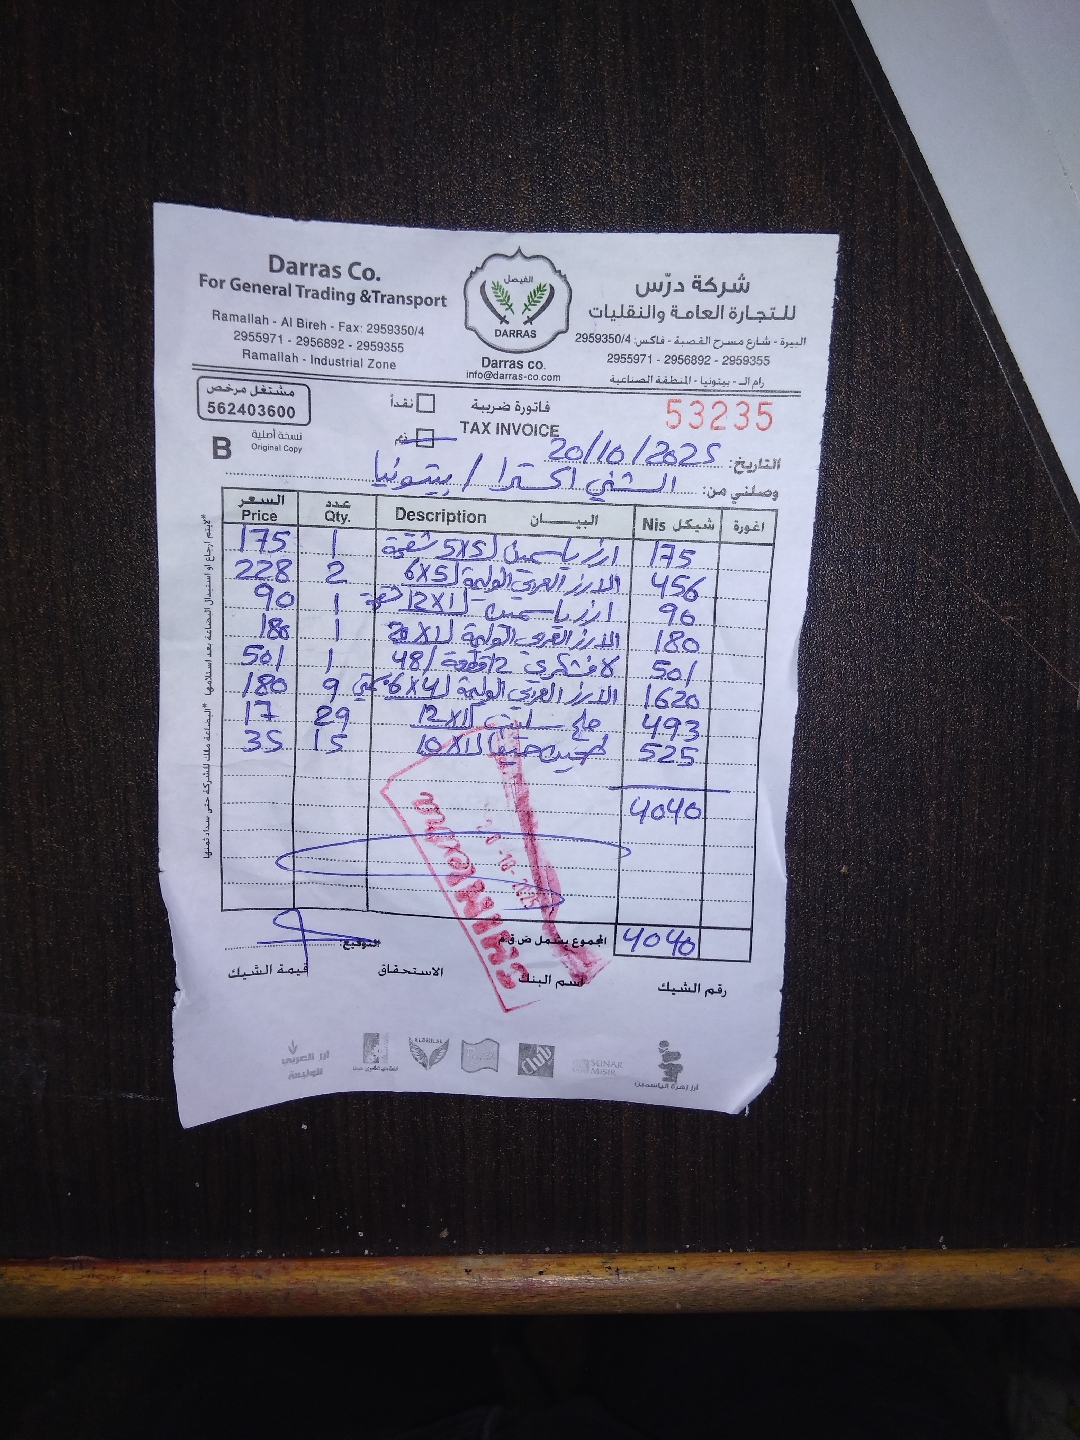 Darras Co.
For General Trading &Transport
Ramallah - Al Bireh - Fax: 2959350/4
2955971 - 2956892 - 2959355
Ramallah - Industrial Zone
الفيصل
DARRAS
Darras co.
info@darras-co.com
شركة درّس
للتجارة العامة والنقليات
البيرة - شارع مسرح القصبة - فاكس: 2959350/4
2955971 - 2956892 - 2959355
رام الله - بيتونيا - المنطقة الصناعية
مشتغل مرخص
562403600
B
نسخة أصلية
Original Copy
نقداً
ذمم
فاتورة ضريبة
TAX INVOICE
53235
التاريخ: 20/10/2025
وصلني من: الشني اكسترا / بيتونيا
السعر Price عدد Qty. Description البيـــان Nis شيكل اغورة
175 1 ارز ياسمين 5X5 175
228 2 الارز العربي الوليمة 6X5 456
90 1 ارز ياسمين 12X1 90
180 1 الارز العربي الوليمة 20X1 180
50/ 1 48/ 50/
180 9 الارز العربي الوليمة 6X4 1620
17 29 ملح 12X1 493
35 15 10X1 525
4040
المجموع يشمل ض ق م 4040
التوقيع:
رقم الشيك اسم البنك الاستحقاق قيمة الشيك
أرز العربي
الوليمة
SUNAR
MISIR
أرز زهرة الياسمين